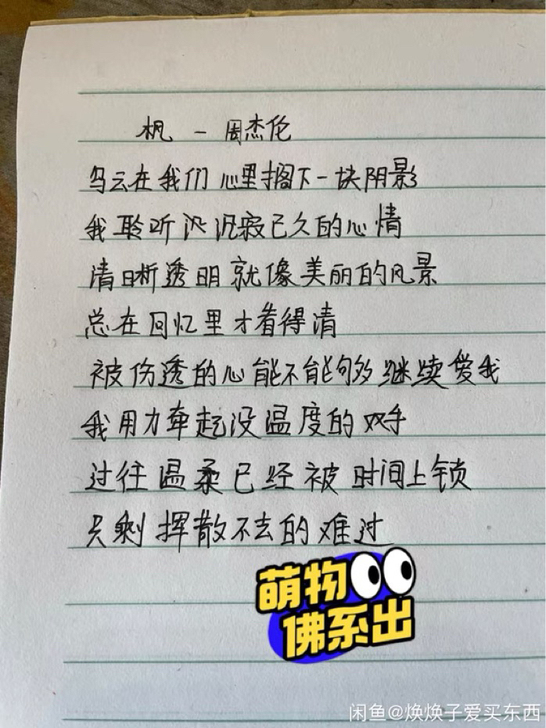 枫 - 周杰伦
乌云在我们心里搁下一块阴影
我聆听沉寂已久的心情
清晰透明就像美丽的风景
总在回忆里才看得清
被伤透的心能不能够继续爱我
我用力牵起没温度的双手
过往温柔已经被时间上锁
只剩挥散不去的难过
萌物
佛系出
闲鱼@焕焕子爱买东西